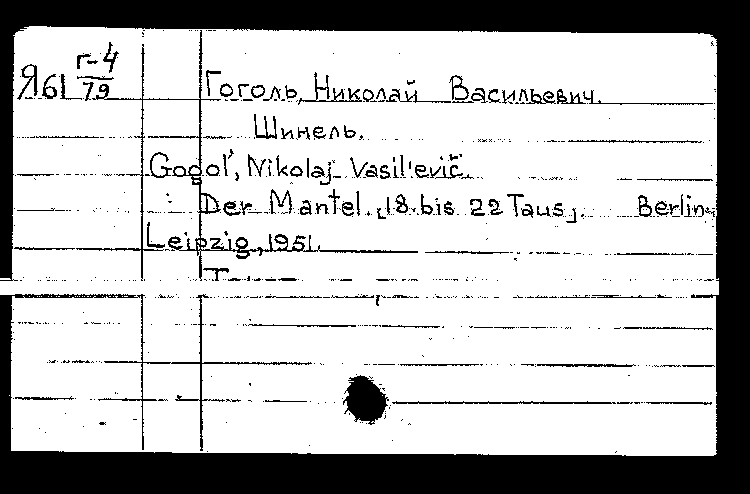 Я61 Г-4/79
Гоголь, Николай Васильевич.
Шинель.
Gogol', Nikolaj Vasil'evič.
Der Mantel. [18. bis 22 Taus]. Berlin-
Leipzig, 1951.